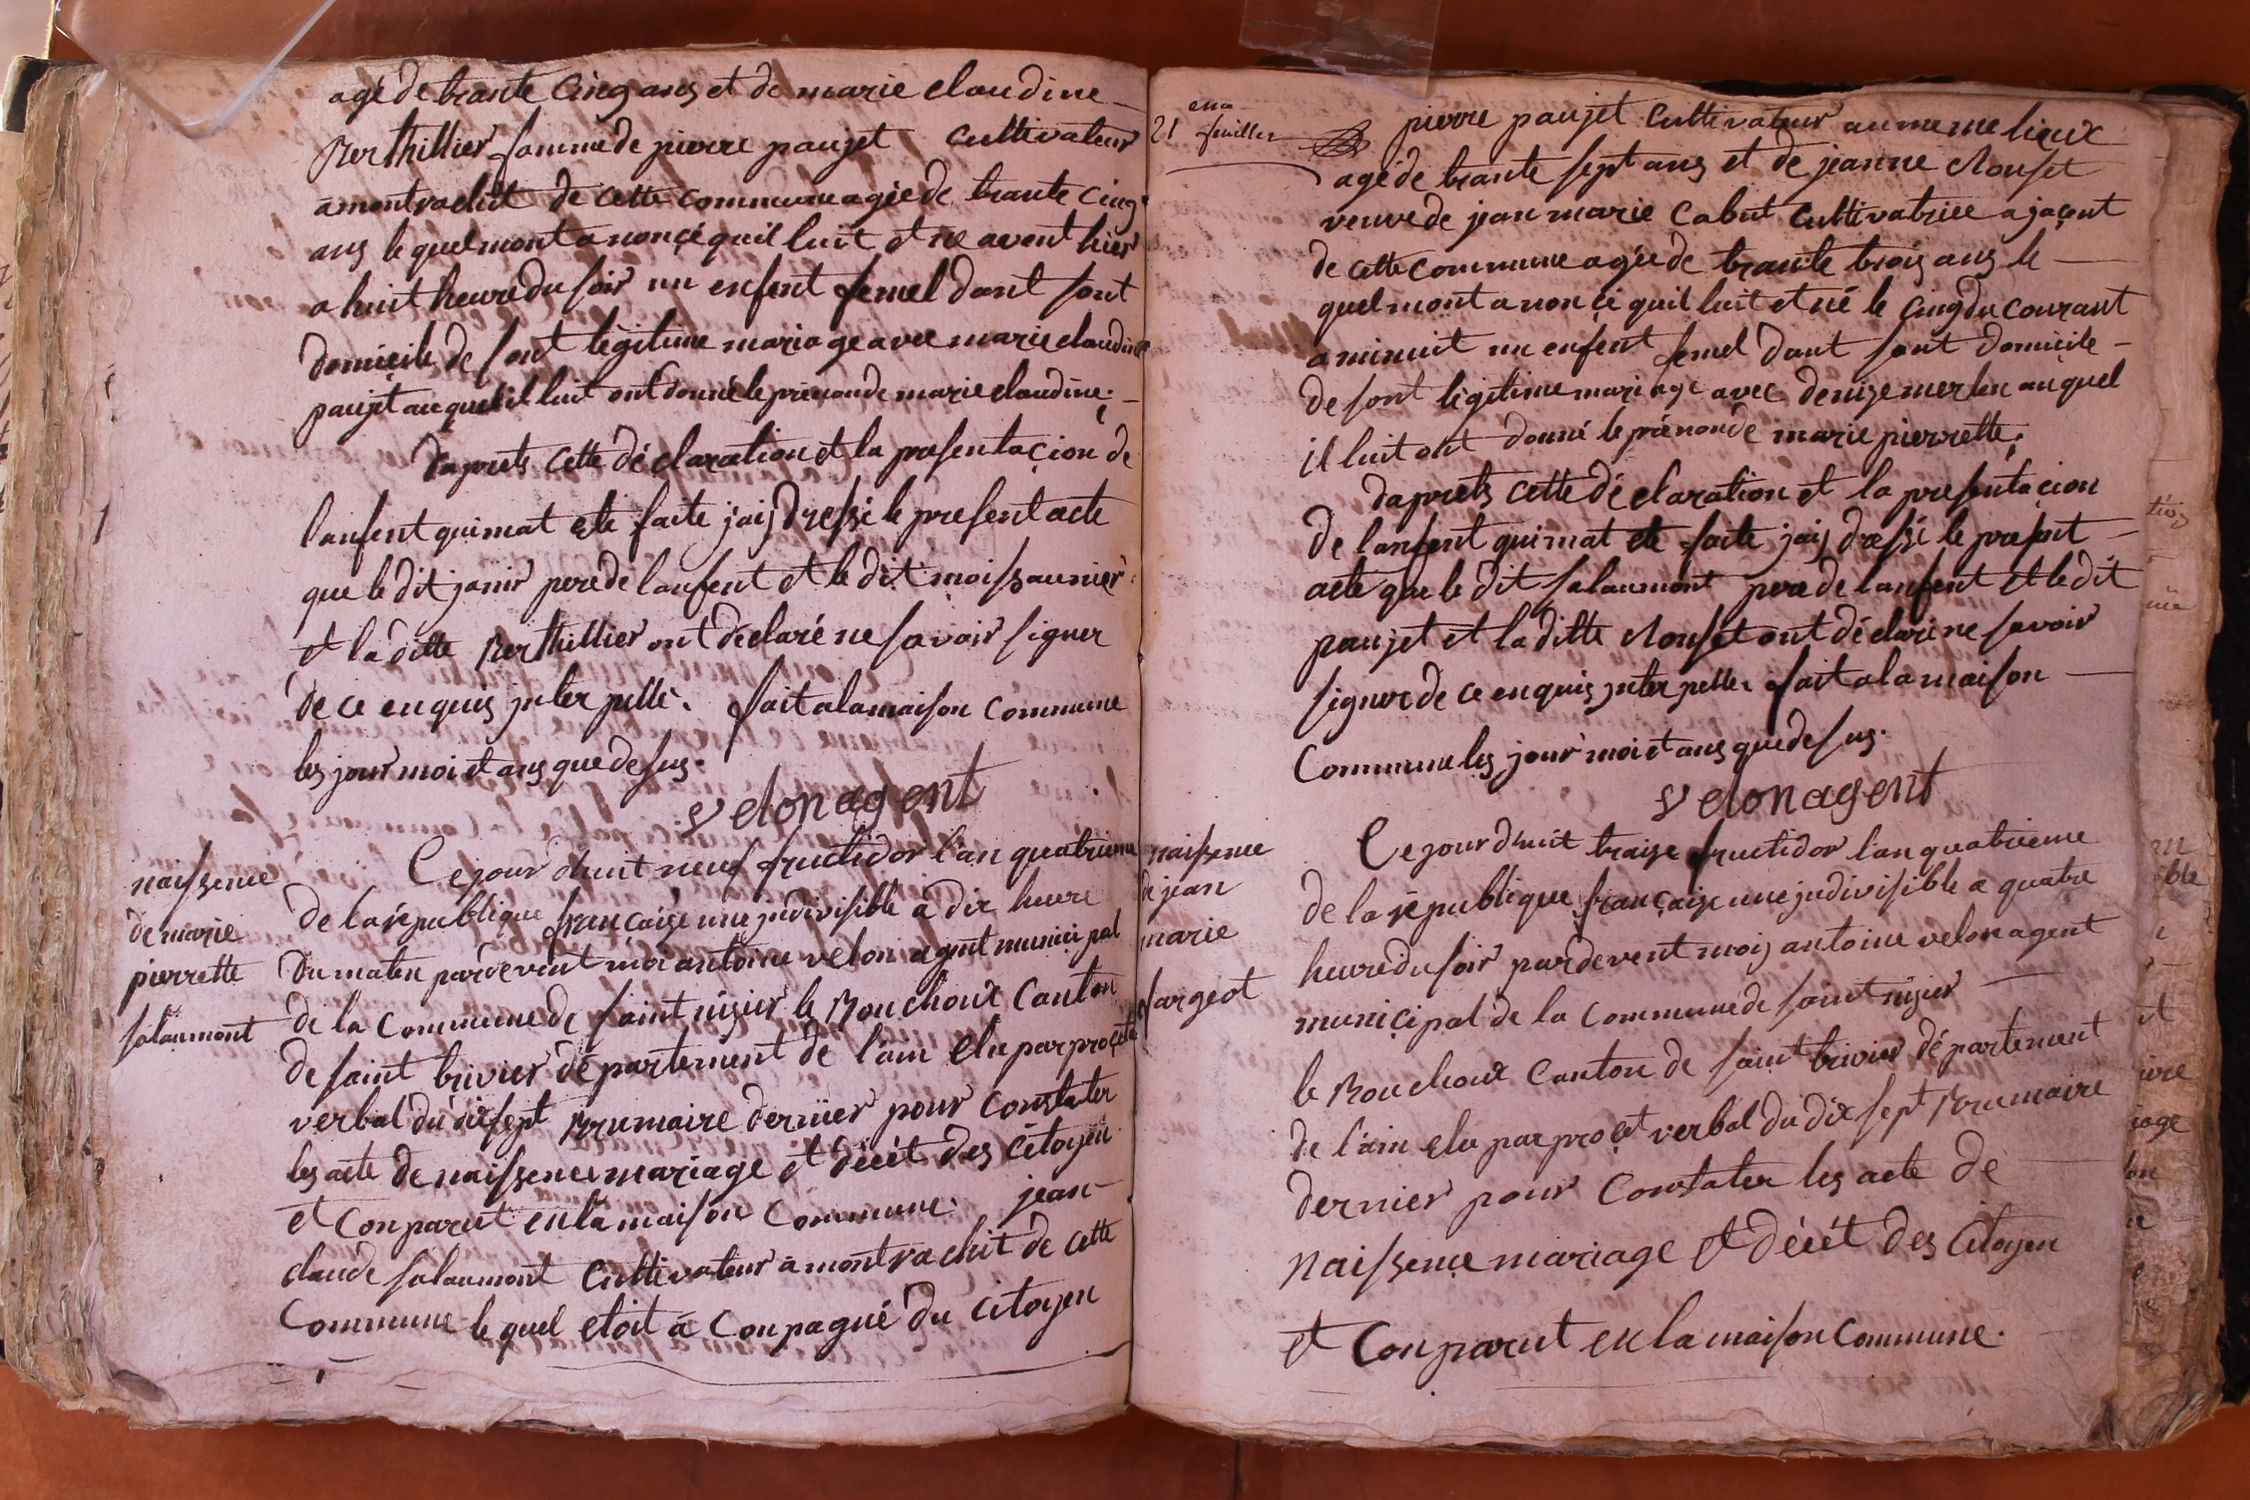 agé de trante Cinq ans et de marie claudine
Berthillier famme de pierre paujet cultivateur
a montrachit de cette commune agée de trante cinq
ans le quel mont anonçé quil luit et né avent hier
a huit heure du soir un enfent femel dant sont
domicile de sont légitime mariage avec marie claudine
paujet auquel il luit ont donné le prénon de marie claudine.
daprets cette déclaration et la presentaçion de
lanfent qui mat ete faite jaij dressé le present acte
que le dit janir pere de lanfent et le dit moissaunier
et la ditte Berthillier ont déclaré ne savoir signer
de ce enquis jnterpellé. fait a la maison Commune
les jour moi et ans que desus.
velon agent
naissence
de marie
pierrette
salaumont
Ce jour dhuit neuf fructidor l'an quatrieme
de la république française une jndivisible à dix heure
du maten pardevent moi antoine velon agent municipal
de la Commune de saint nizier le Bouchoux Canton
de saint trivier département de l'ain elu par proçet
verbal du dix sept Brumaire dernier pour Constater
les acte de naissence mariage et déçét des citoyen
et Conparut en la maison Commune. jean
claude salaumont Cultivateur a montrachit de cette
Commune le quel etoit a Conpagné du citoyen
21 eme
feuillet
pierre paujet cultivateur au meme lieux
agé de trante sept ans et de jeanne clouset
veuve de jean marie Cabut cultivatrice a jaçent
de cette commune agée de trante trois ans le
quel mont anonçé quil luit et né le çinq du courant
a minuit un enfent femel dant sont domicile
de sont légitime mariage avec denize merlen auquel
il luit ont donné le prénon de marie pierrette.
daprets cette déclaration et la presentaçion
de lanfent qui mat ete faite jaij dressé le present
acte que le dit salaumont pere de lanfent et le dit
paujet et la ditte clouset ont déclaré ne savoir
signer de ce enquis jnterpellé fait a la maison
Commune les jour moi et ans que desus.
velon agent
naissence
de jean
marie
fargeot
Ce jour dhuit traize fructidor l'an quatrieme
de la république française une jndivisible a quatre
heure du soir pardevent moij antoine velon agent
muniçipal de la Commune de saint nizier
le Bouchoux Canton de saint trivier département
de l'ain elu par proçet verbal du dix sept Brumaire
dernier pour Constater les acte de
Naissence mariage et déçét des Citoyen
et Conparut en la maison Commune.